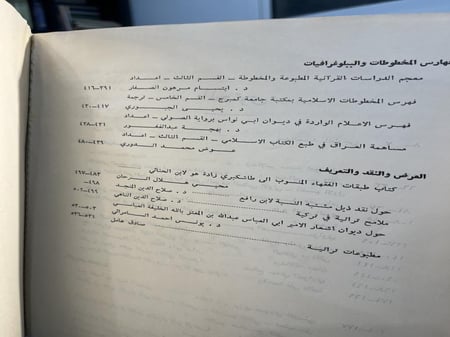 فهارس المخطوطات والببلوغرافيات
معجم الدراسات القرآنية المطبوعة والمخطوطة - القسم الثالث - اعداد
د. ابتسام مرهون الصفار ٣٩١-٤١٦
فهرس المخطوطات الاسلامية بمكتبة جامعة كمبرج - القسم الخامس - ترجمة
د. يحيى الجبوري ٤١٧-٤٣٠
فهرس الاعلام الواردة في ديوان ابي نواس برواية الصولي - اعداد
د. بهجة عبدالغفور ٤٣١-٤٣٨
مساهمة العراق في طبع الكتاب الاسلامي - القسم الثالث - اعداد
عوض محمد الدوري ٤٣٩-٤٨٠
العرض والنقد والتعريف
كتاب طبقات الفقهاء المنسوب الى طاشكبري زادة هو لابن الحنائي
محيي هلال السرحان ٤٨٣-٤٩٧
حول نقد ذيل مشتبه النسبة لابن رافع د. صلاح الدين المنجد ٤٩٨
ملامح تراثية في تركية د. صلاح الدين الناهي
حول ديوان اشعار الامير ابي العباس عبدالله بن المعتز بالله الخليفة العباسي
د. يونس احمد السامرائي
مطبوعات تراثية صادق عامل